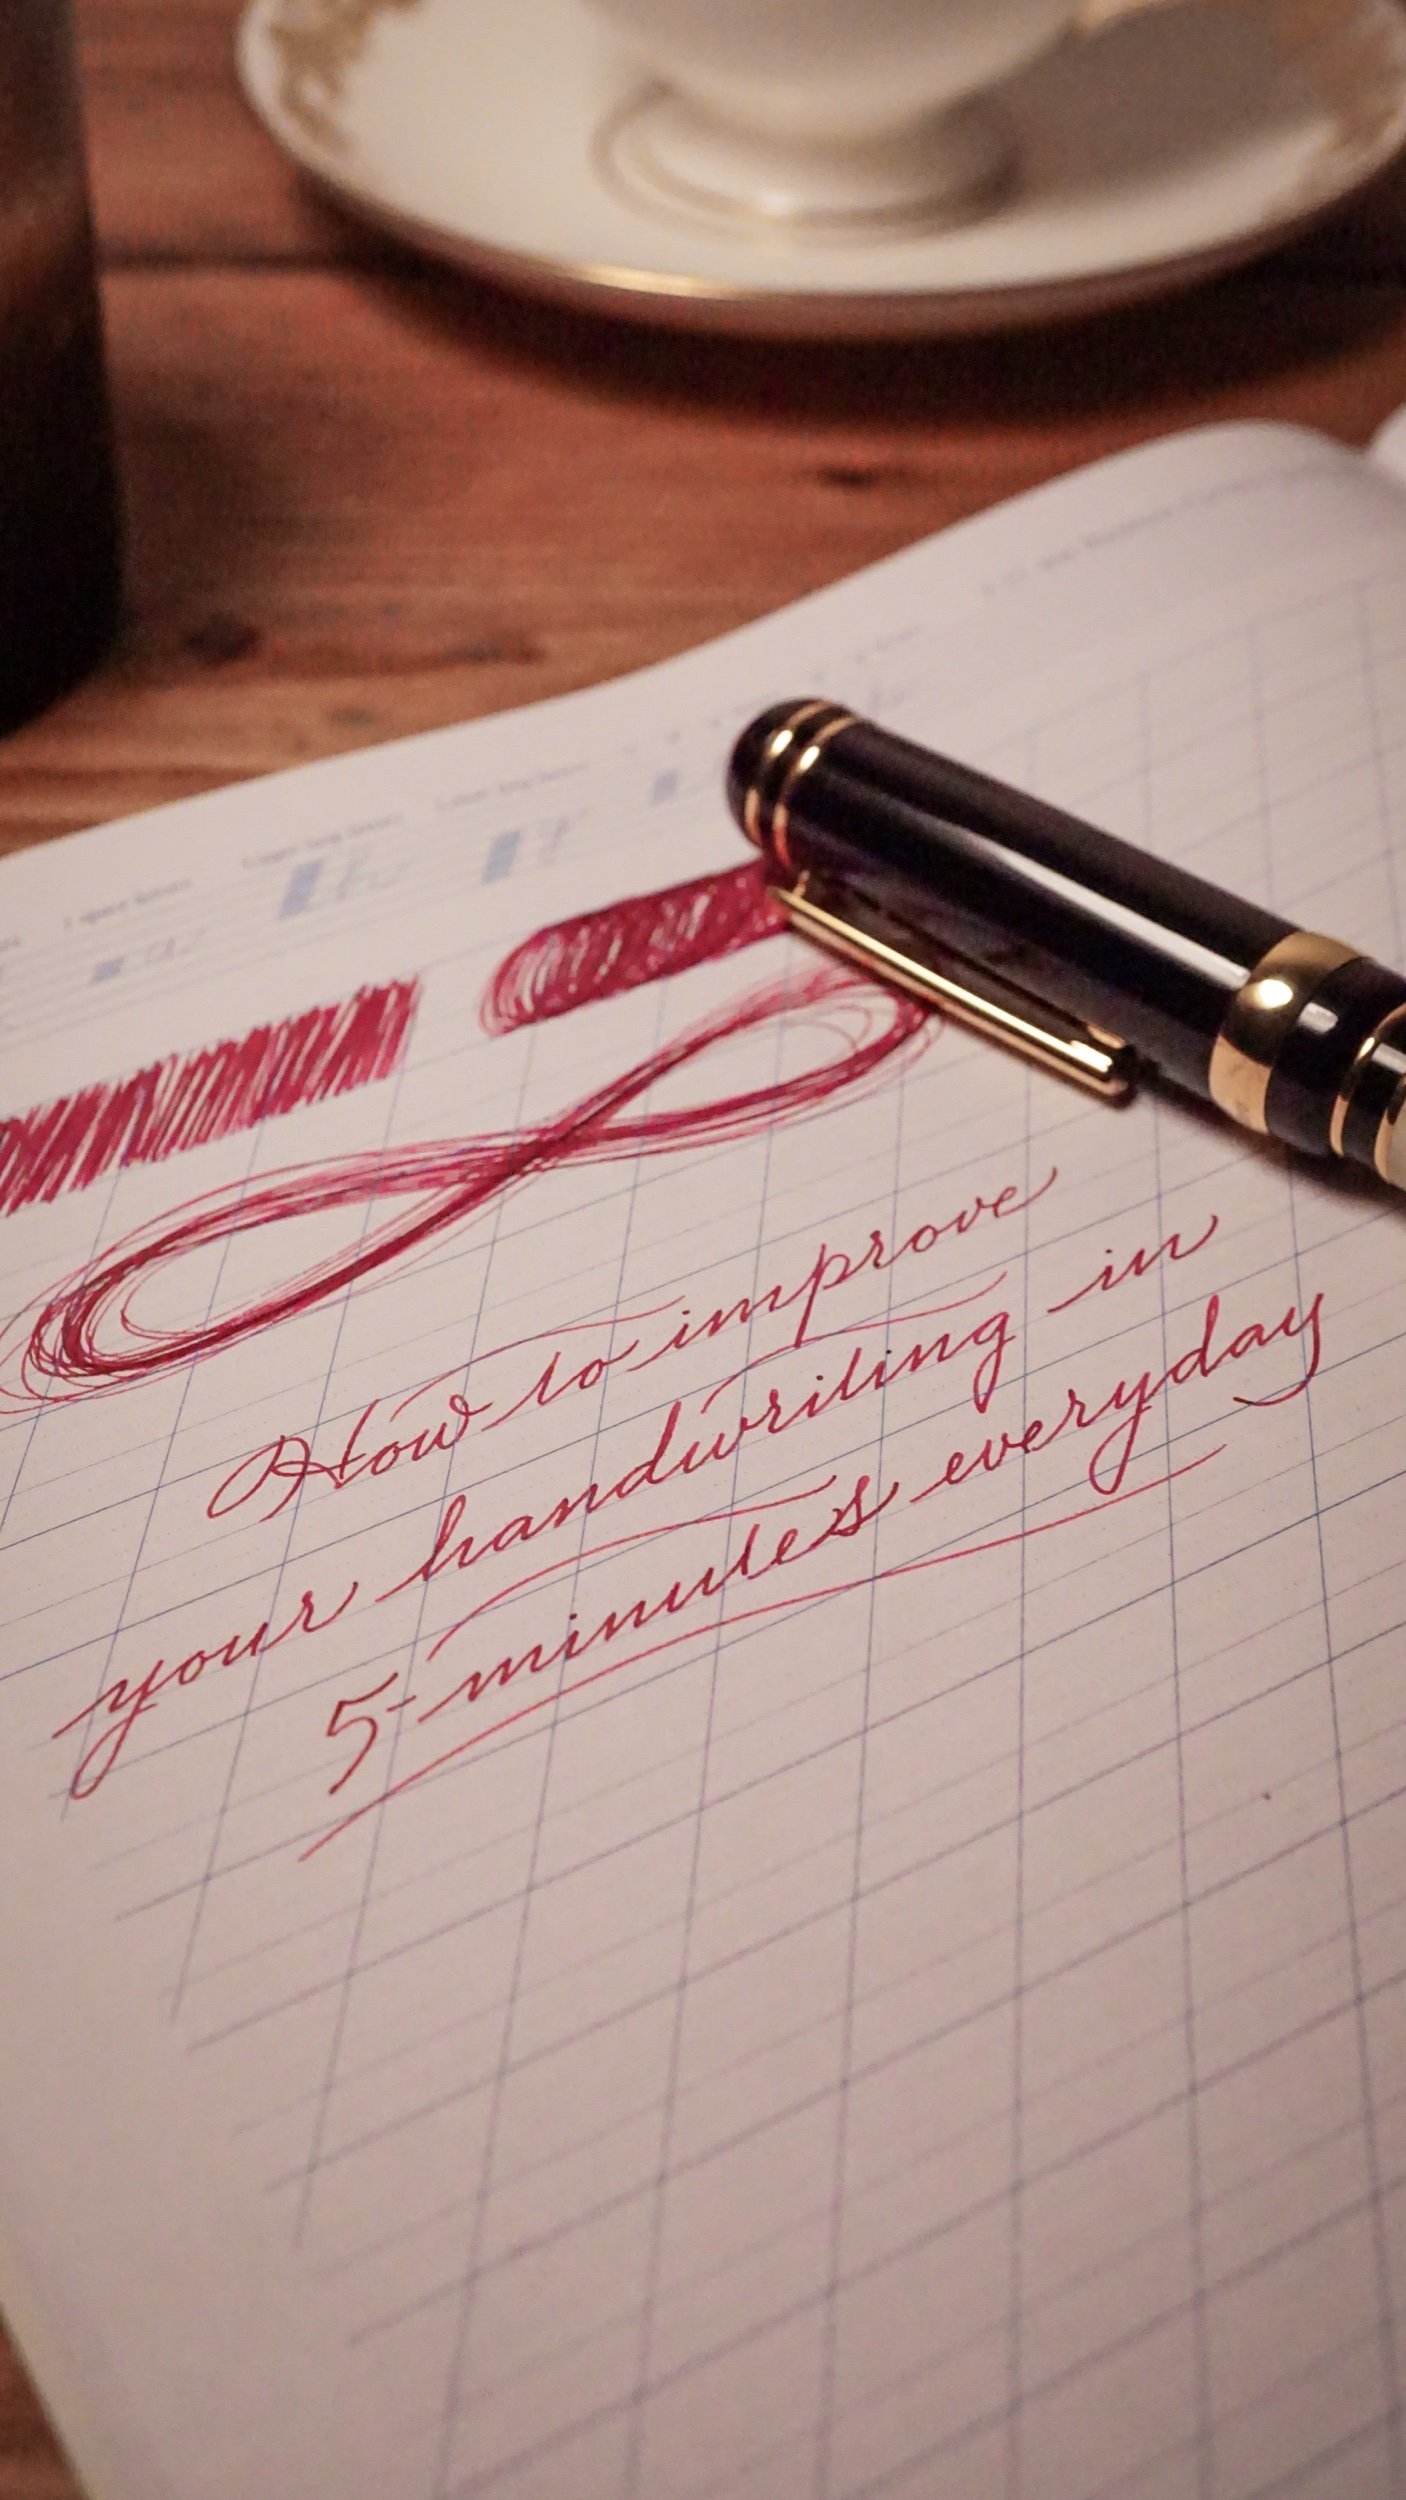 How to improve
your handwriting in
5-minutes everyday